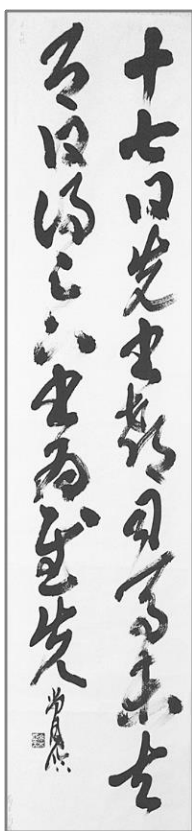 十七日先書郗司馬未去
即日得足下書為慰先